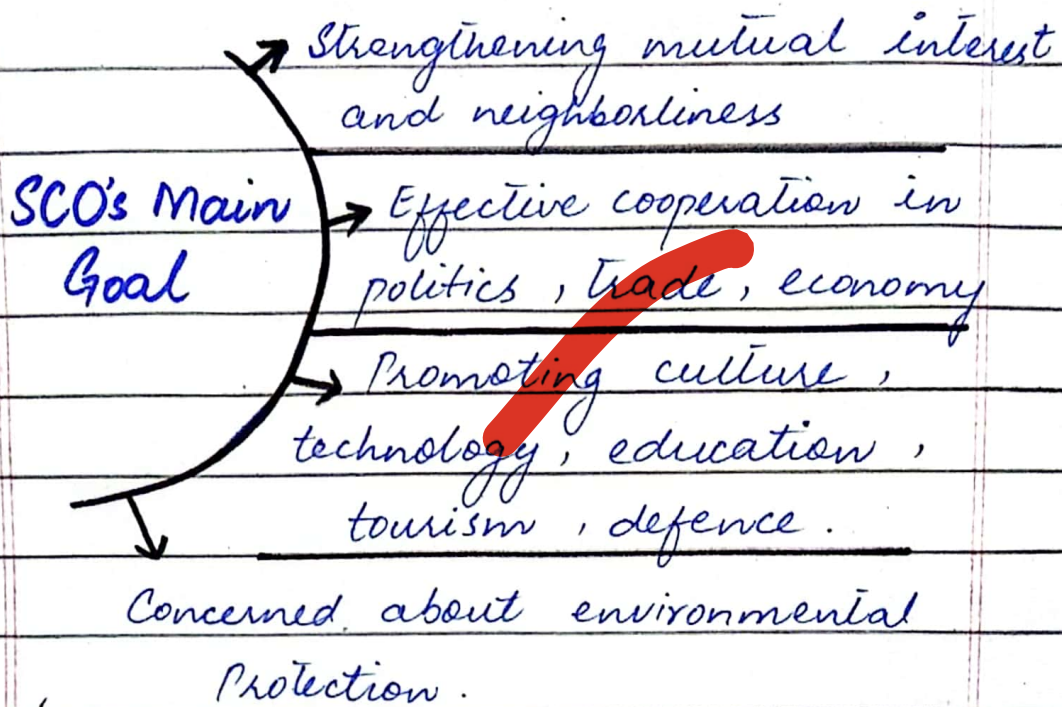 Strengthening mutual interest
and neighborliness
SCO's Main
Goal
Effective cooperation in
politics, trade, economy
Promoting culture,
technology, education,
tourism, defence.
Concerned about environmental
Protection.